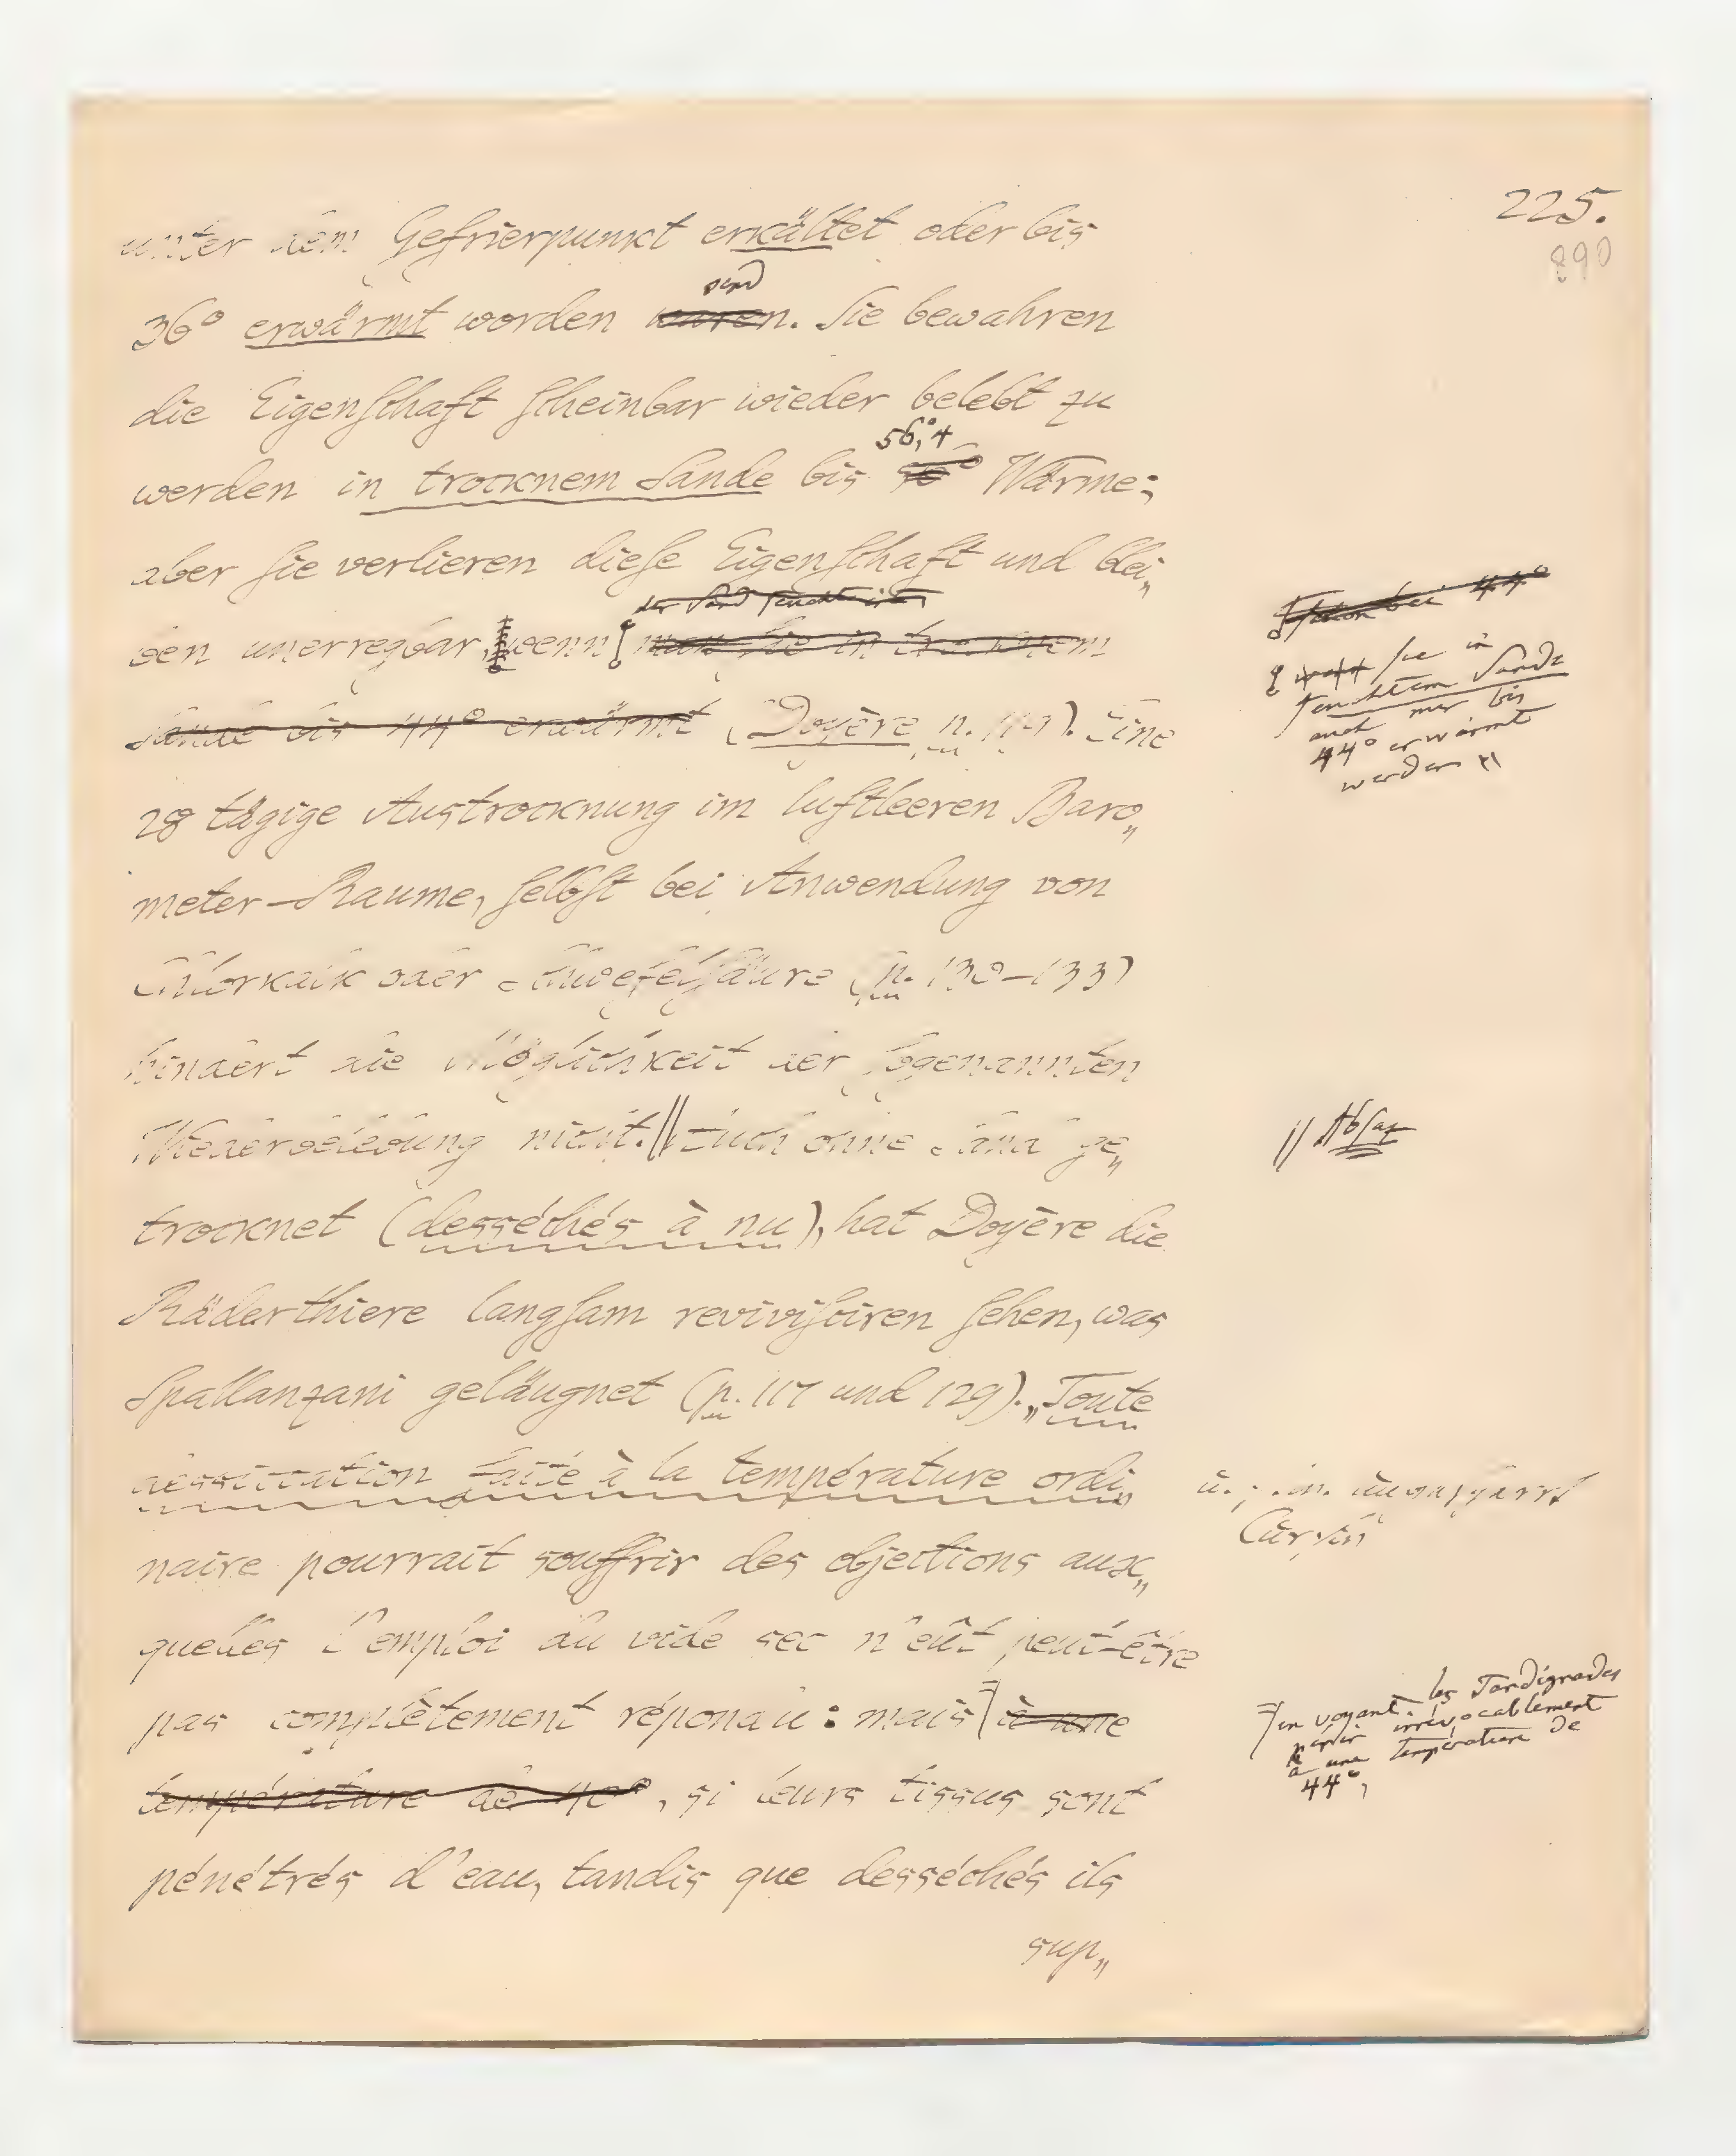 225.
890
unter dem Gefrierpunkt erkältet oder bis
sind
36° erwärmt worden waren. Sie bewahren
die Eigenſchaft ſcheinbar wieder belebt zu
56,°4
werden in trocknem Sande bis 50° Wärme;
aber ſie verlieren dieſe Eigenſchaft und blei„
der Sand feucht iſt
ben unerregbar, wenn man ſie in trocknem
Sande bis 44° erwärmt (Doyère p. 119). Eine
28 tägige Austrocknung im luftleeren Baro„
meter-Raume, ſelbſt bei Anwendung von
Chlorkalk oder Schwefelſäure (p. 130–133)
hindert die Möglichkeit der ſogenannten
Wiederbelebung nicht. // Auch ohne Sand ge„
trocknet (desséchés à nu), hat Doyère die
Räderthiere langſam reviviſciren ſehen, was
Spallanzani geläugnet (p. 117 und 129). „Toute
dessiccation faite à la température ordi„
naire pourrait souffrir des objections aux„
quelles l'emploi du vide sec n'eût peut-être
pas complètement répondu: mais à une
température de 40°, si leurs tissus sont
pénétrés d'eau, tandis que desséchés ils
sup„
ſchon bei 44°
ſie in
feuchtem Sande
auch nur bis
44° erwärmt
werden
// Abſaz
en voyant les Tardigrades
périr irrévocablement
à une température de
44°,